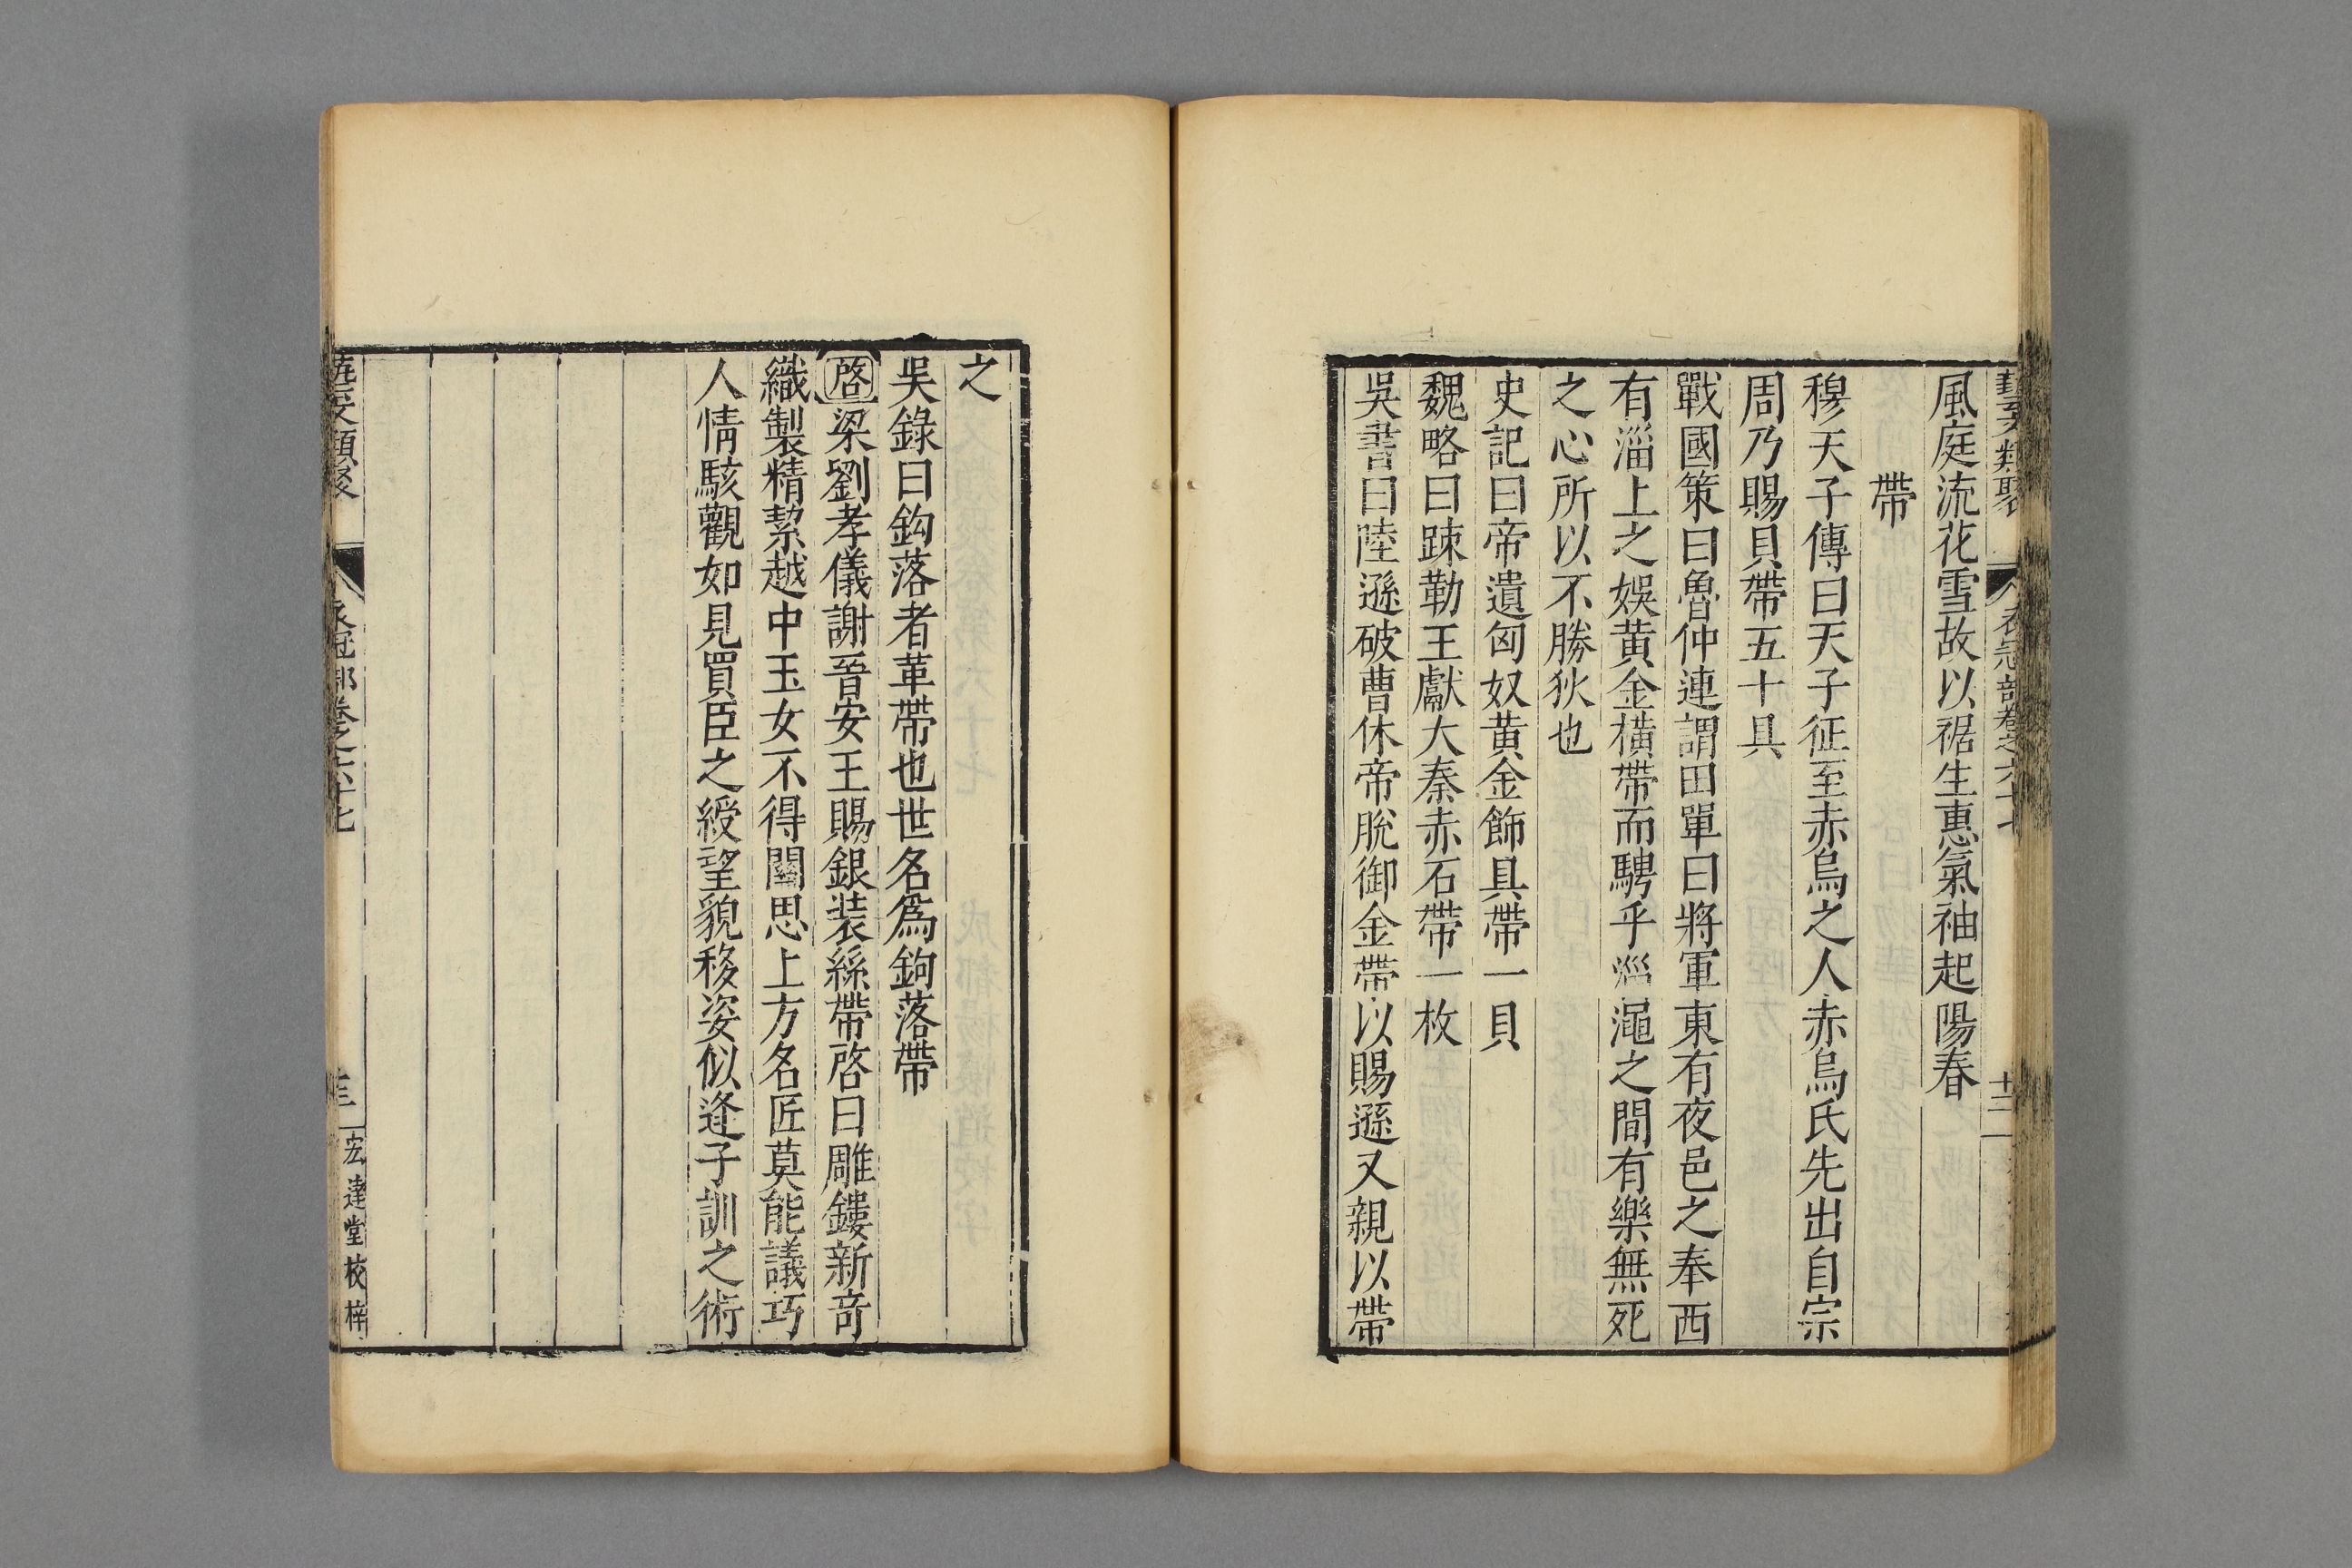 藝文類聚 衣冠部卷之六十七 十二
風庭流花雪故以裾生惠氣袖起陽春
帶
穆天子傳曰天子征至赤烏之人赤烏氏先出自宗
周乃賜貝帶五十具
戰國策曰魯仲連謂田單曰將軍東有夜邑之奉西
有淄上之娛黃金橫帶而騁乎淄澠之間有樂無死
之心所以不勝狄也
史記曰帝遺匈奴黃金飾具帶一貝
魏略曰踈勒王獻大秦赤石帶一枚
吳書曰陸遜破曹休帝脫御金帶以賜遜又親以帶
之
吳錄曰鈎落者革帶也世名爲鉤落帶
啓梁劉孝儀謝晉安王賜銀装絲帶啓曰雕鏤新竒
織製精絜越中玉女不得闚思上方名匠莫能議巧
人情駭觀如見買臣之綬望貌移姿似逢子訓之術
藝文類聚 衣冠部卷之六十七 宏達堂校梓